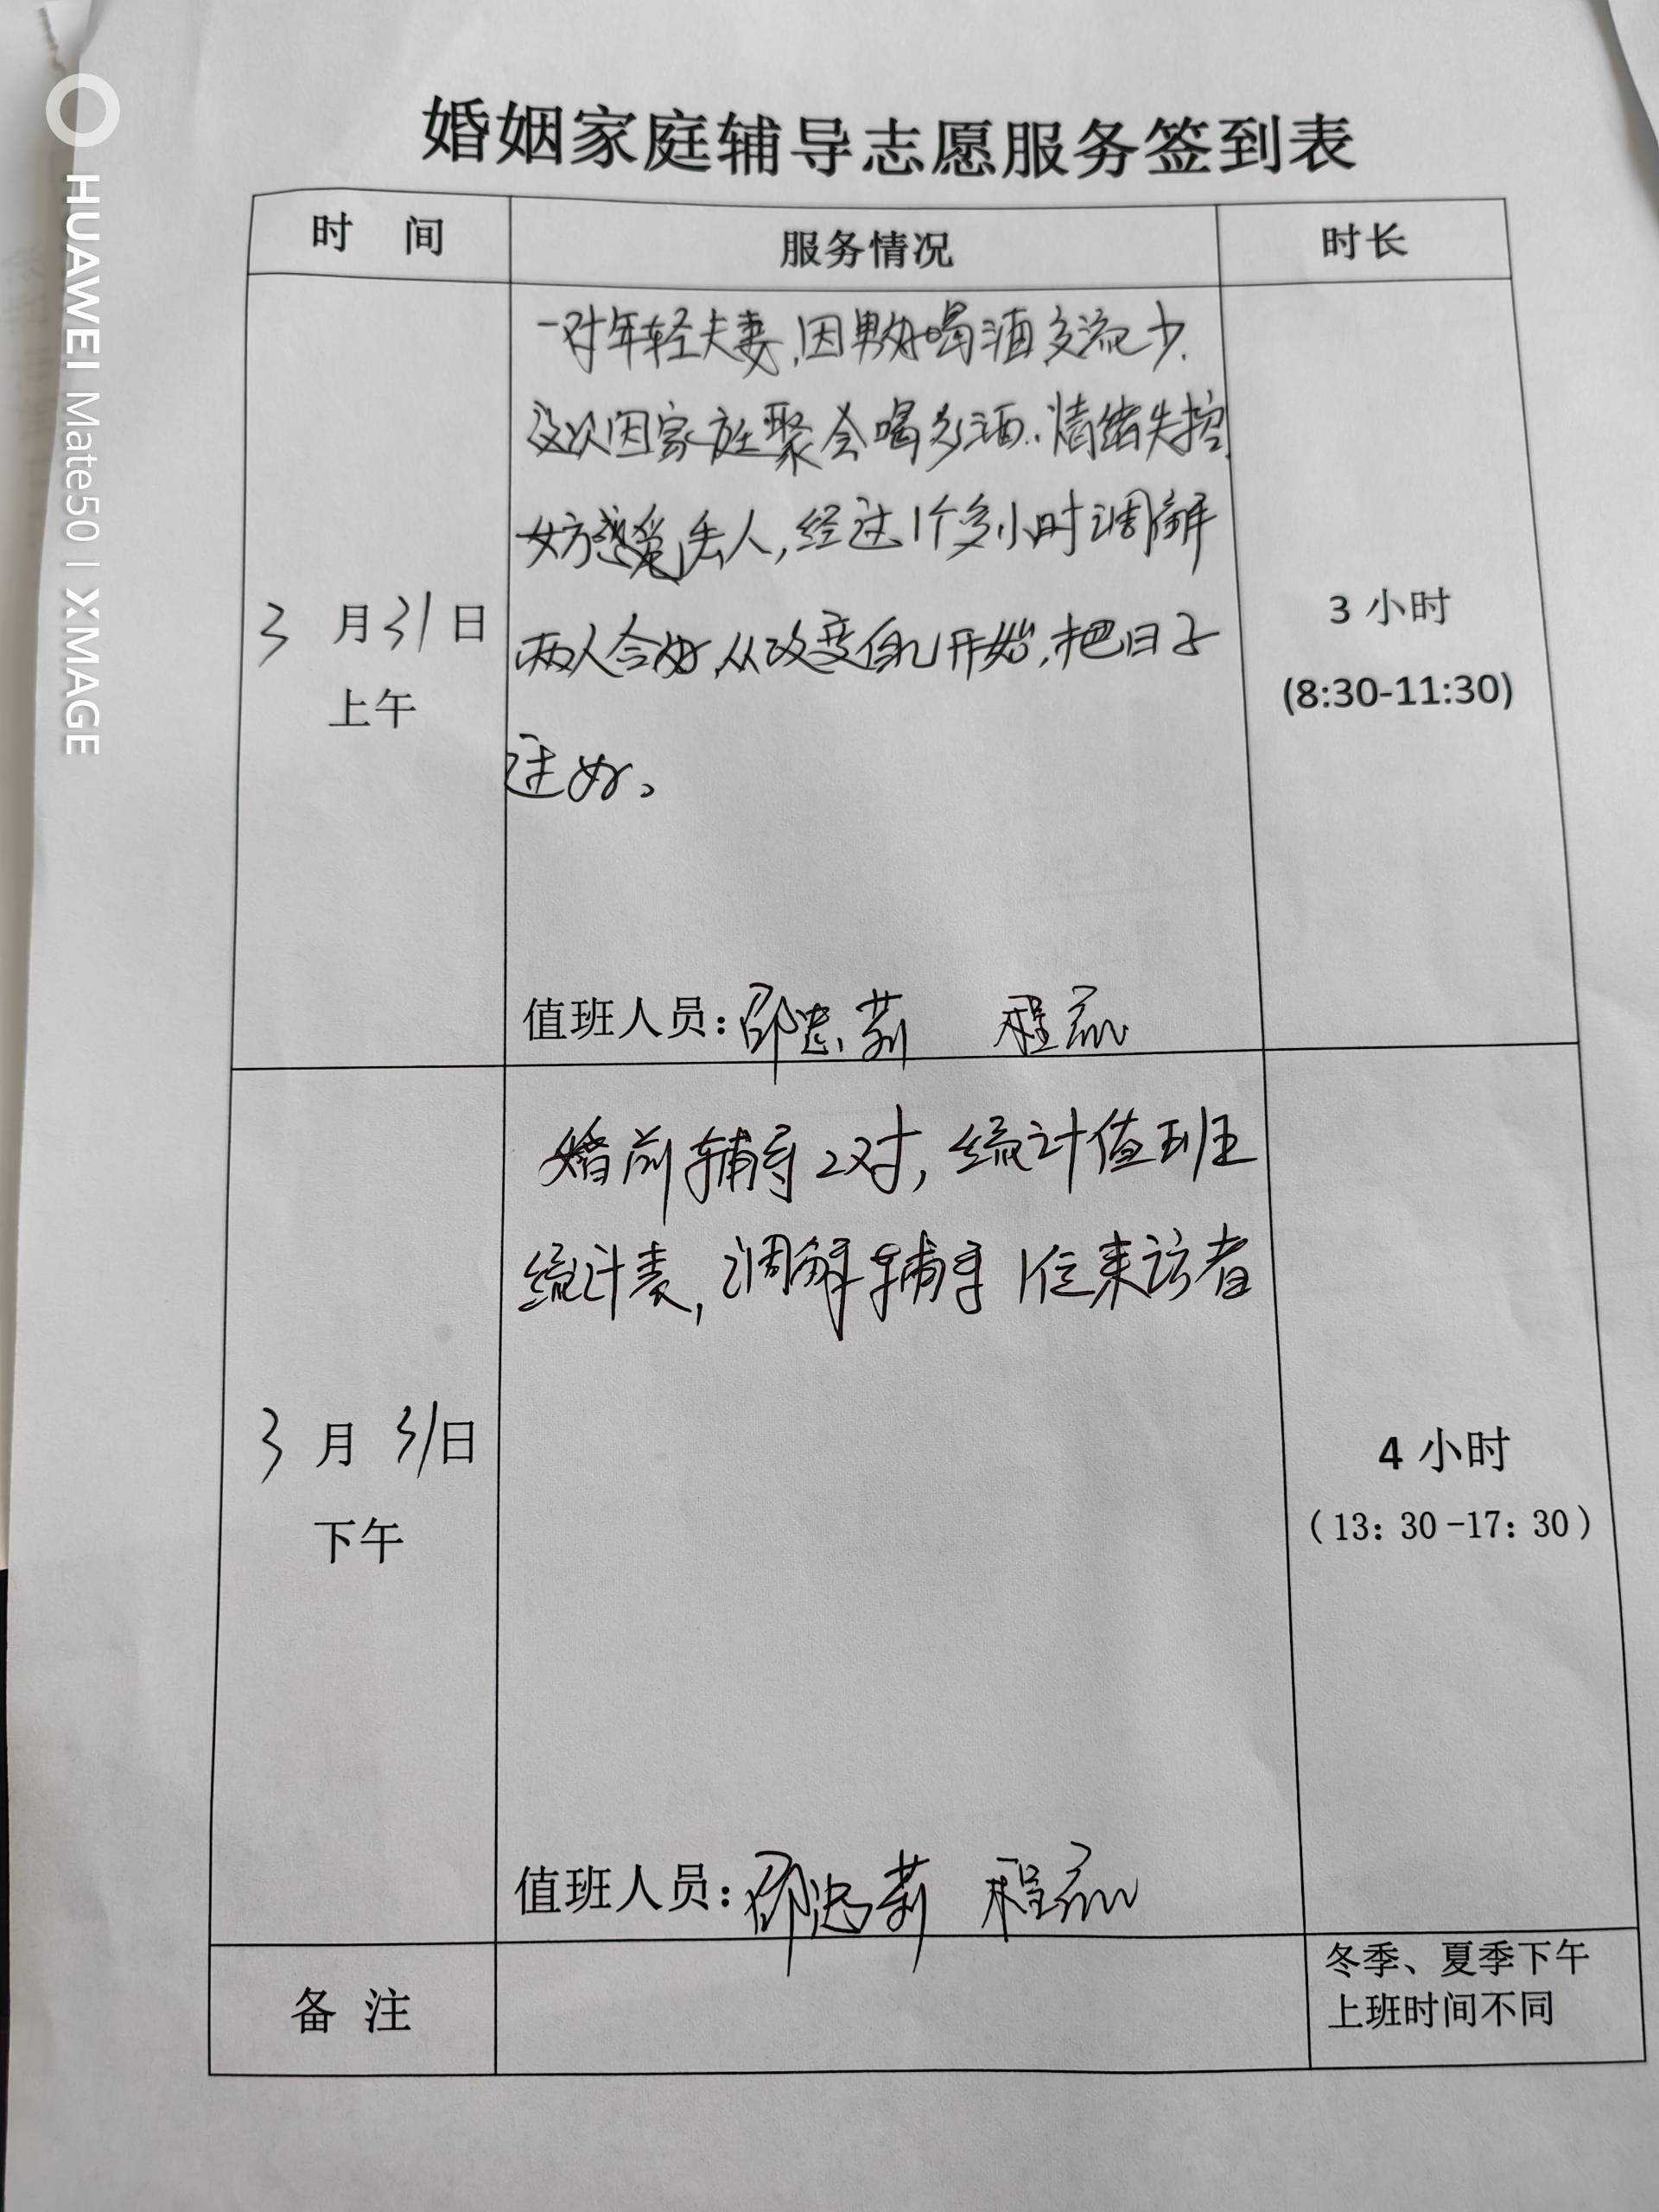 HUAWEI Mate50 | XMAGE
婚姻家庭辅导志愿服务签到表
时 间 服务情况 时长
3月31日
上午
一对年轻夫妻,因男好喝酒交流少.
这次因家庭聚会喝多酒.情绪失控
女方感觉丢人,经过1个多小时调解
两人合好,从改变自己开始,把日子
过好。
值班人员: 程
3小时
(8:30-11:30)
3月31日
下午
婚前辅导2对,统计值班
统计表,调解辅导1位来访者
值班人员: 程
4小时
(13:30-17:30)
备注
冬季、夏季下午
上班时间不同